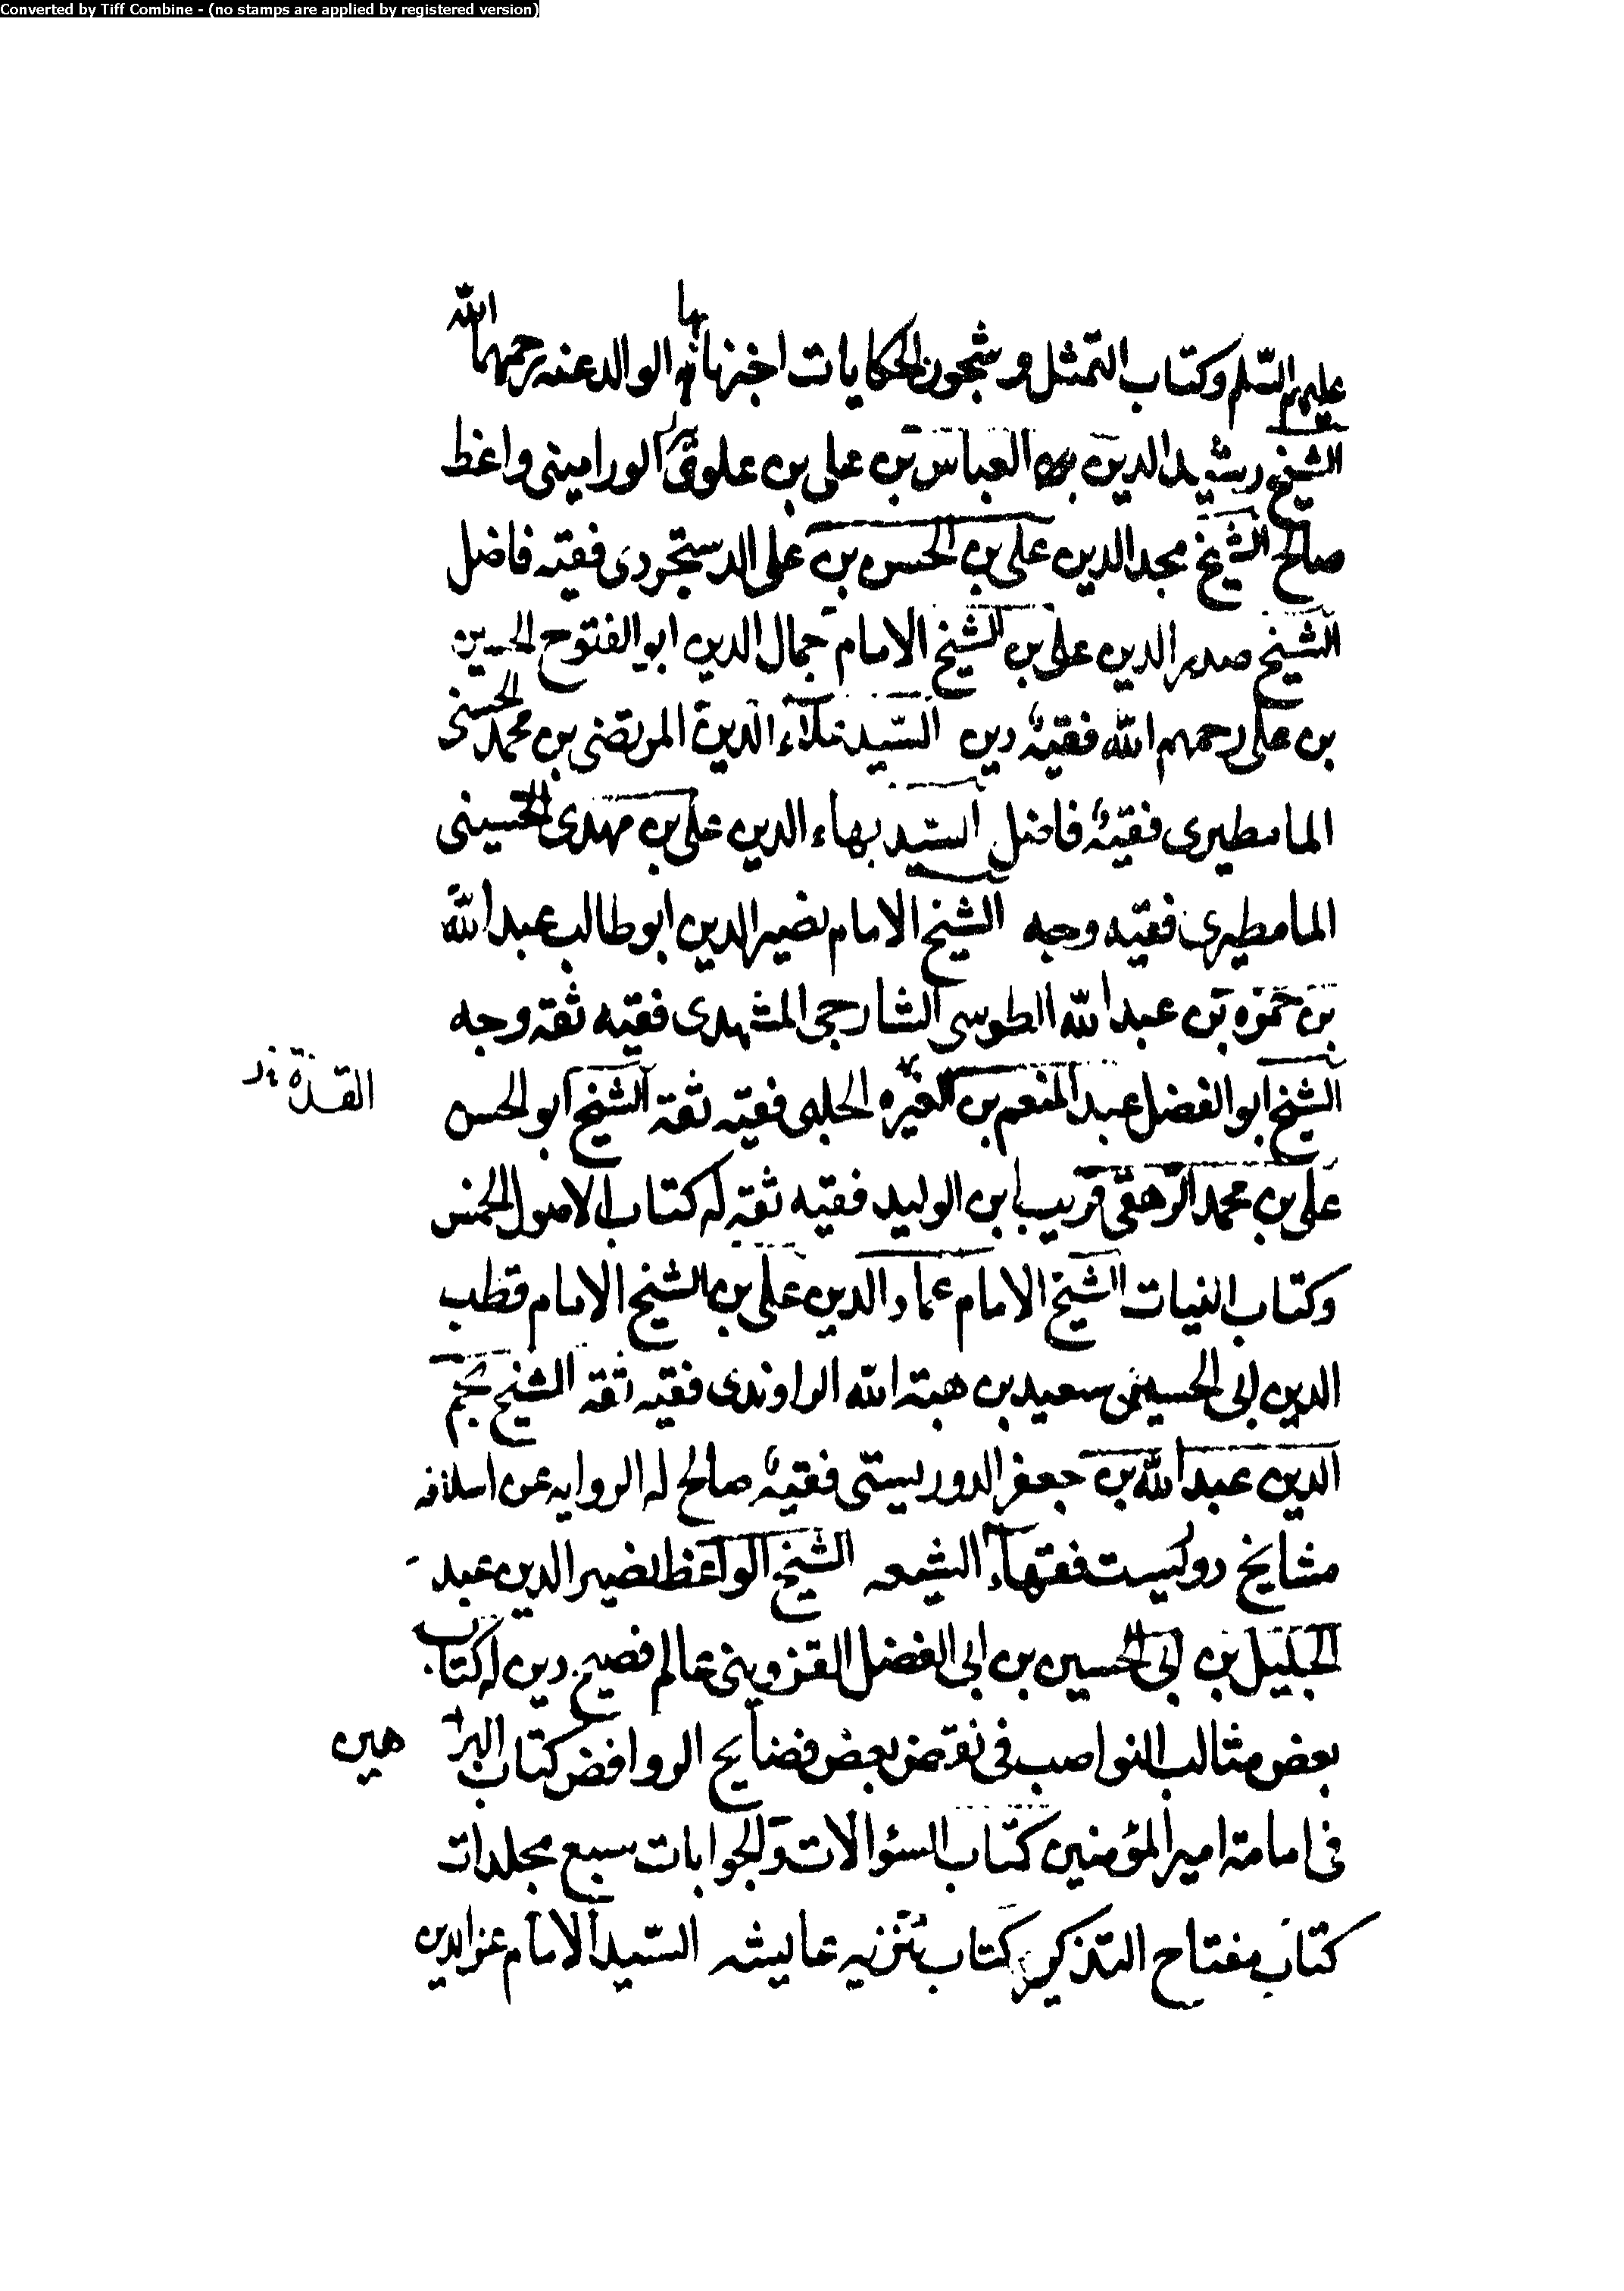 Converted by Tiff Combine - (no stamps are applied by registered version)
عليهم السّلم وكتاب التمثل وشجون الحكايات اخبرنا بها الوالد عنه رحمهما الله
الشيخ رشيد الدين العباس بن على بن علويه الورامينى واعظ
صالح الشيخ مجد الدين على بن الحسن بن على الدستجردى فقيه فاضل
الشيخ صدر الدين على بن الشيخ الامام جمال الدين ابو الفتوح الحسين
بن على رحمهم الله فقيه دين السّيد علاء الدين المرتضى بن محمد الحسنى
المامطيرى فقيه فاضل السيد بهاء الدين على بن مهدى الحسينى
المامطيرى فقيه وجه الشيخ الامام نصير الدين ابو طالب عبد الله
بن حمزه بن عبد الله الطوسى الشارحى المشهدى فقيه ثقة وجه
الشيخ ابو الفضل عبد المنعم بن الغيره الحلبى فقيه ثقة الشيخ ابو الحسن
على بن محمد الرهقى قريب ابن الوليد فقيه ثقة له كتاب الاصول الخمس
وكتاب النيات الشيخ الامام عماد الدين على بن الشيخ الامام قطب
الدين ابى الحسين سعيد بن هبة الله الراوندى فقيه ثقة الشيخ نجم
الدين عبد الله بن جعفر الدوريستى فقيه صالح له الروايه عن اسلافه
مشايخ دوريست فقهاء الشيعه الشيخ الواعظ نصير الدين عبد
الجليل بن ابى الحسين بن ابى الفضل القزوينى عالم فصيح دين له كتاب
بعض مثالب النواصب فى نقض بعض فضايح الروافض كتاب البراهين
فى امامة امير المؤمنين كتاب السؤالات والجوابات سبع مجلدات
كتاب مفتاح التذكير كتاب تنزيه عايشه السّيد الامام عز الدين